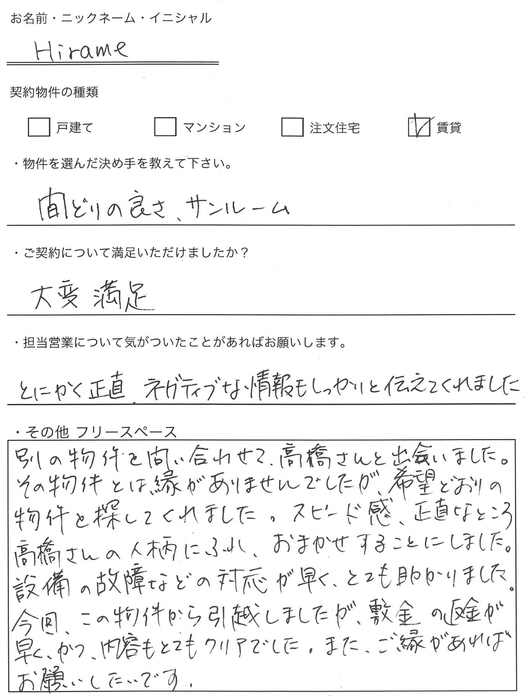 お名前・ニックネーム・イニシャル
Hirame
契約物件の種類
戸建て マンション 注文住宅 賃貸
・物件を選んだ決め手を教えて下さい。
間どりの良さ、サンルーム
・ご契約について満足いただけましたか？
大変満足
・担当営業について気がついたことがあればお願いします。
とにかく正直、ネガティブな情報もしっかりと伝えてくれました
・その他 フリースペース
別の物件を問い合わせて、高橋さんと出会いました。
その物件とは縁がありませんでしたが、希望どおりの
物件を探してくれました。スピード感、正直なところ
高橋さんの人柄にふれ、おまかせすることにしました。
設備の故障などの対応が早く、とても助かりました。
今回、この物件から引越しましたが、敷金の返金が
早く、かつ、内容もとてもクリアでした。また、ご縁があれば
お願いしたいです。